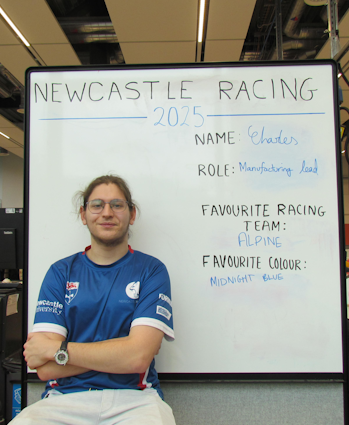 NEWCASTLE RACING
2025
NAME: Charles
ROLE: Manufactoring lead
FAVOURITE RACING
TEAM:
ALPINE
FAVOURITE COLOUR:
MIDNIGHT BLUE
Newcastle
University